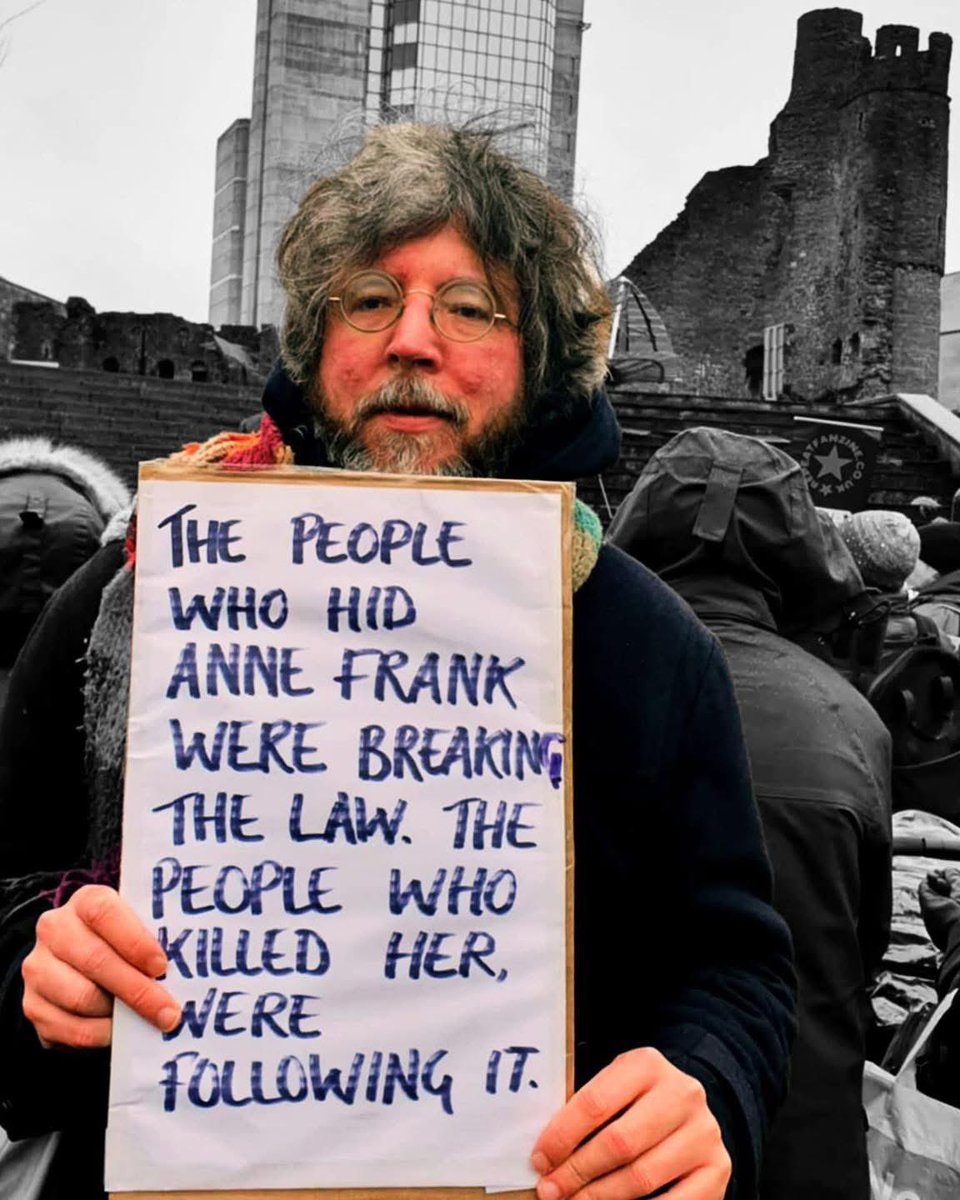 THE PEOPLE
WHO HID
ANNE FRANK
WERE BREAKING
THE LAW. THE
PEOPLE WHO
KILLED HER,
WERE
FOLLOWING IT.
REPEATFANZINE.CO.UK